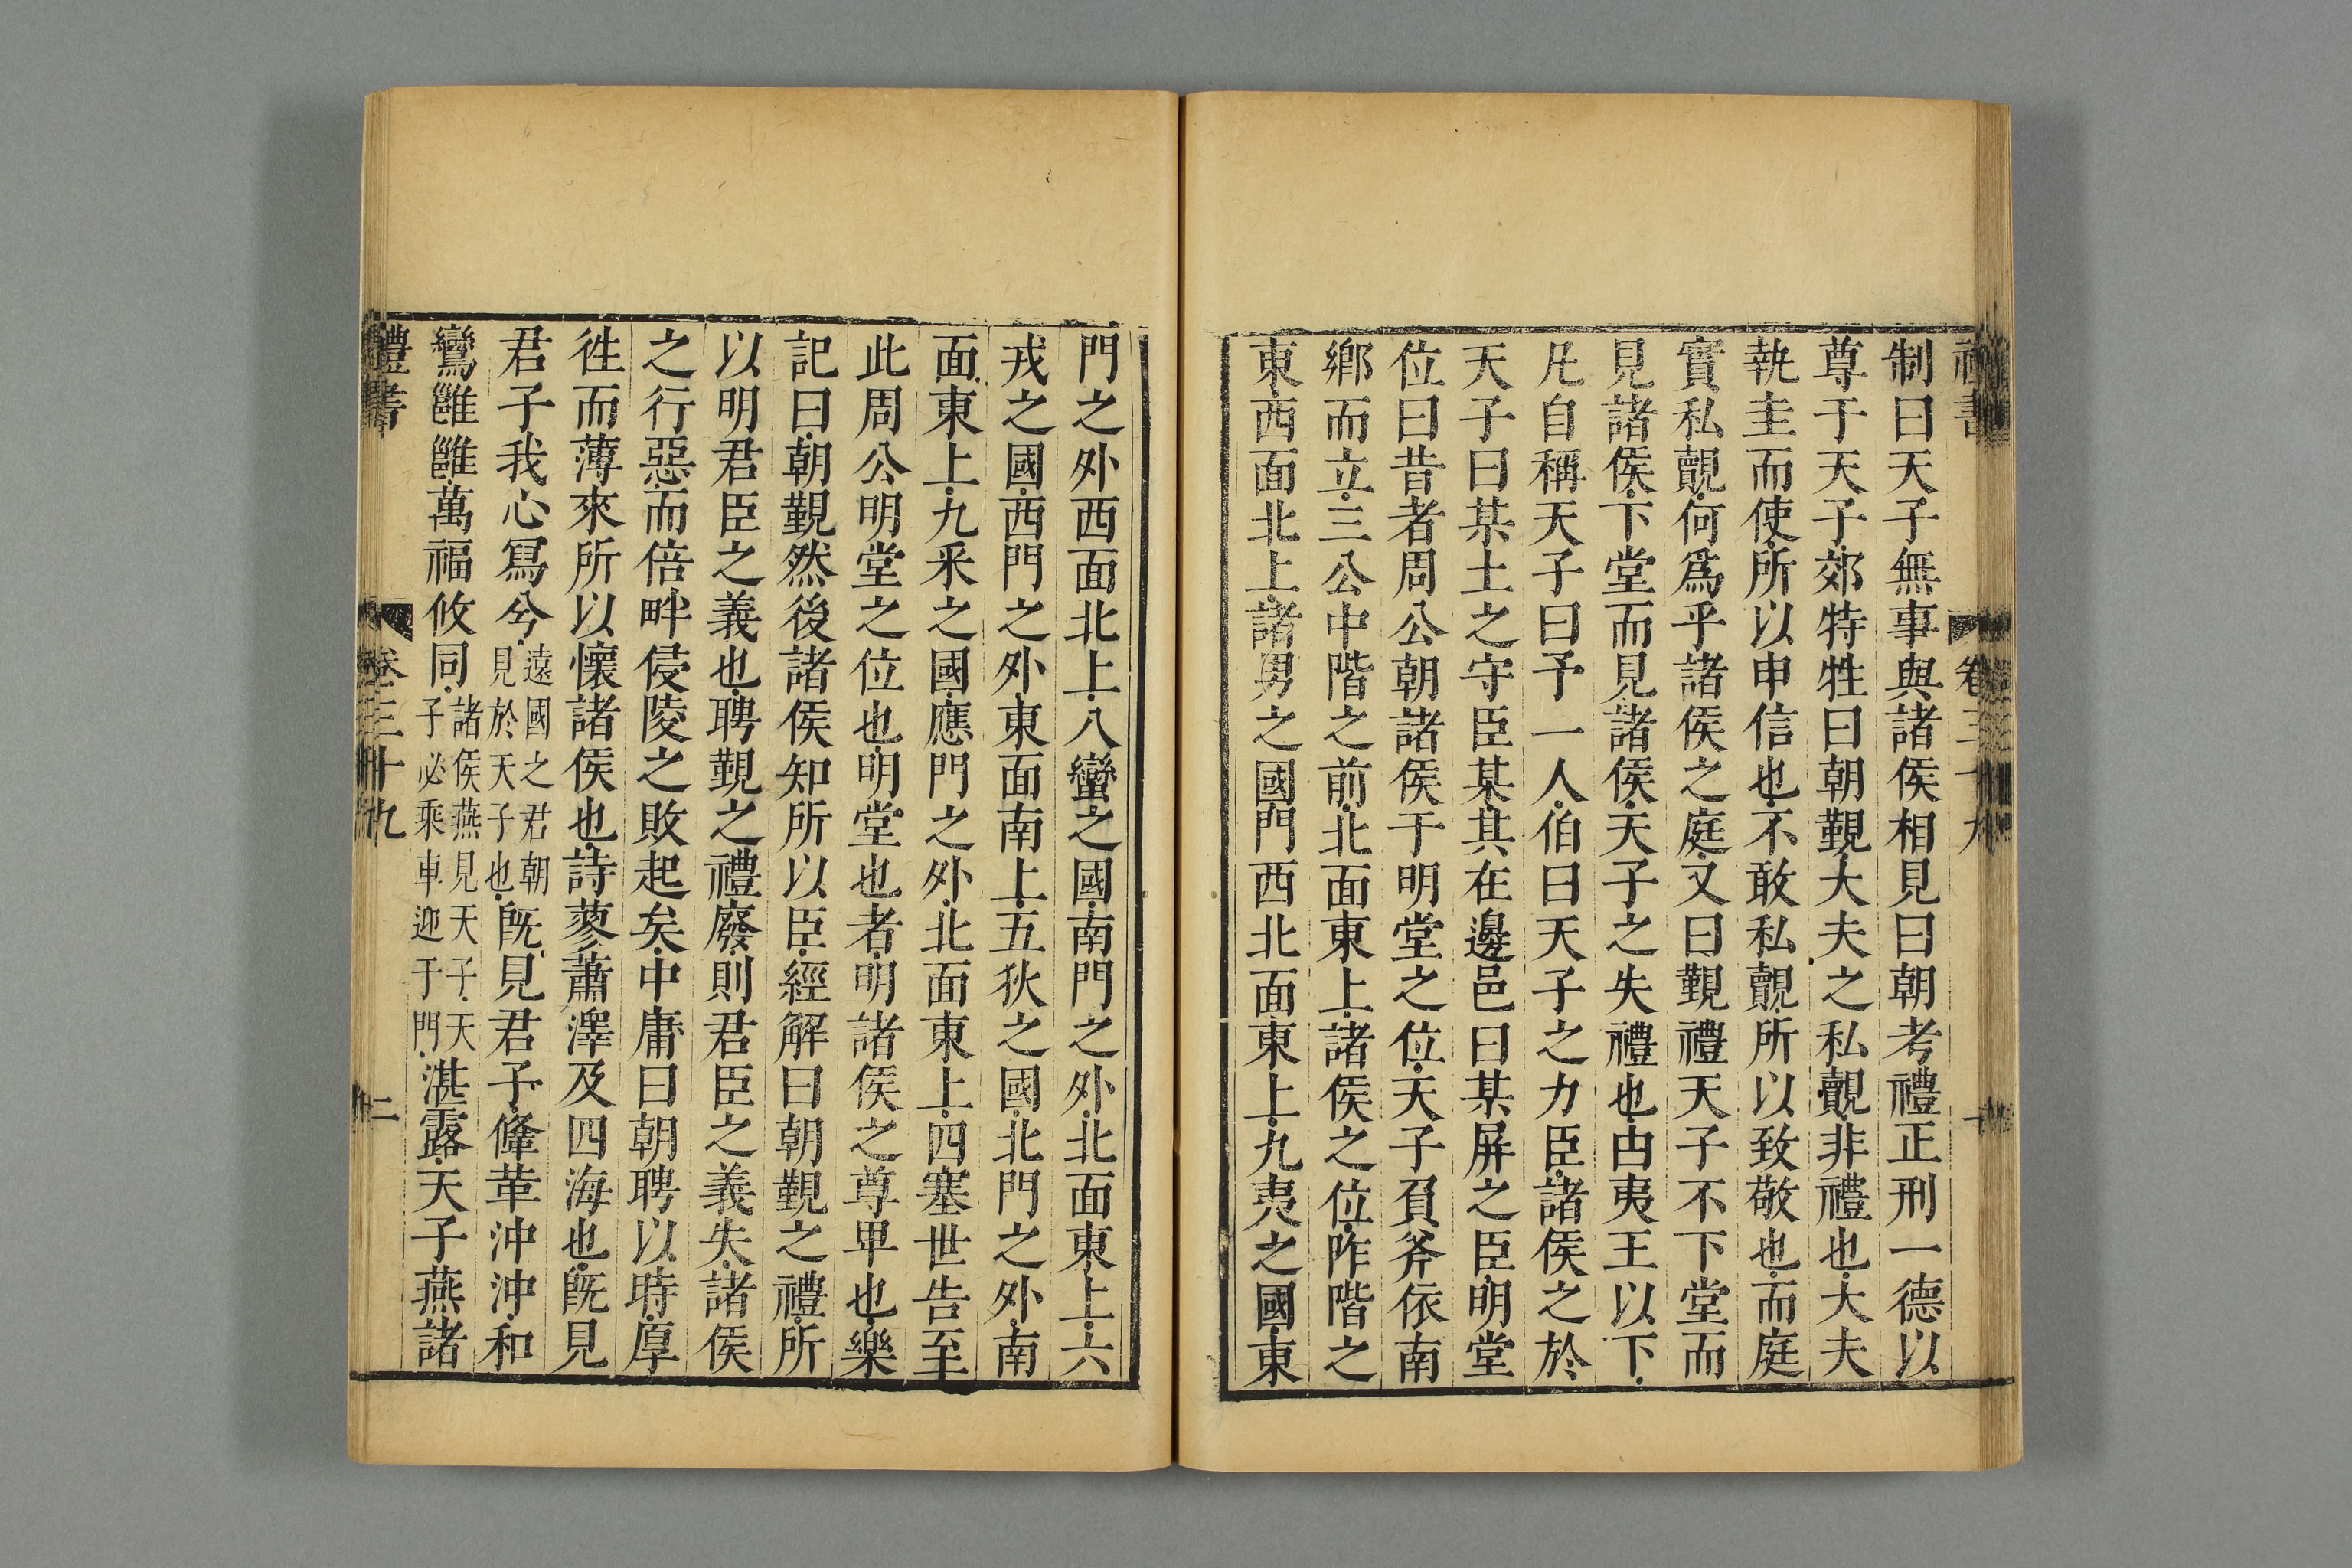 禮書 卷三十九 一
制曰天子無事與諸侯相見曰朝考禮正刑一德以
尊于天子郊特牲曰朝覲大夫之私覿非禮也大夫
執圭而使所以申信也不敢私覿所以致敬也而庭
實私覿何爲乎諸侯之庭又曰覲禮天子不下堂而
見諸侯下堂而見諸侯天子之失禮也由夷王以下
凡自稱天子曰予一人伯曰天子之力臣諸侯之於
天子曰某土之守臣某其在邊邑曰某屏之臣明堂
位曰昔者周公朝諸侯于明堂之位天子負斧依南
鄉而立三公中階之前北面東上諸侯之位阼階之
東西面北上諸男之國門西北面東上九夷之國東
門之外西面北上八蠻之國南門之外北面東上六
戎之國西門之外東面南上五狄之國北門之外南
面東上九采之國應門之外北面東上四塞世告至
此周公明堂之位也明堂也者明諸侯之尊卑也樂
記曰朝覲然後諸侯知所以臣經解曰朝覲之禮所
以明君臣之義也聘覲之禮廢則君臣之義失諸侯
之行惡而倍畔侵陵之敗起矣中庸曰朝聘以時厚
徃而薄來所以懷諸侯也詩蓼蕭澤及四海也旣見
君子我心寫兮遠國之君朝見於天子也旣見君子鞗革沖沖和
鸞雝雝萬福攸同諸侯燕見天子天子必乘車迎于門湛露天子燕諸
禮書 卷三十九 二